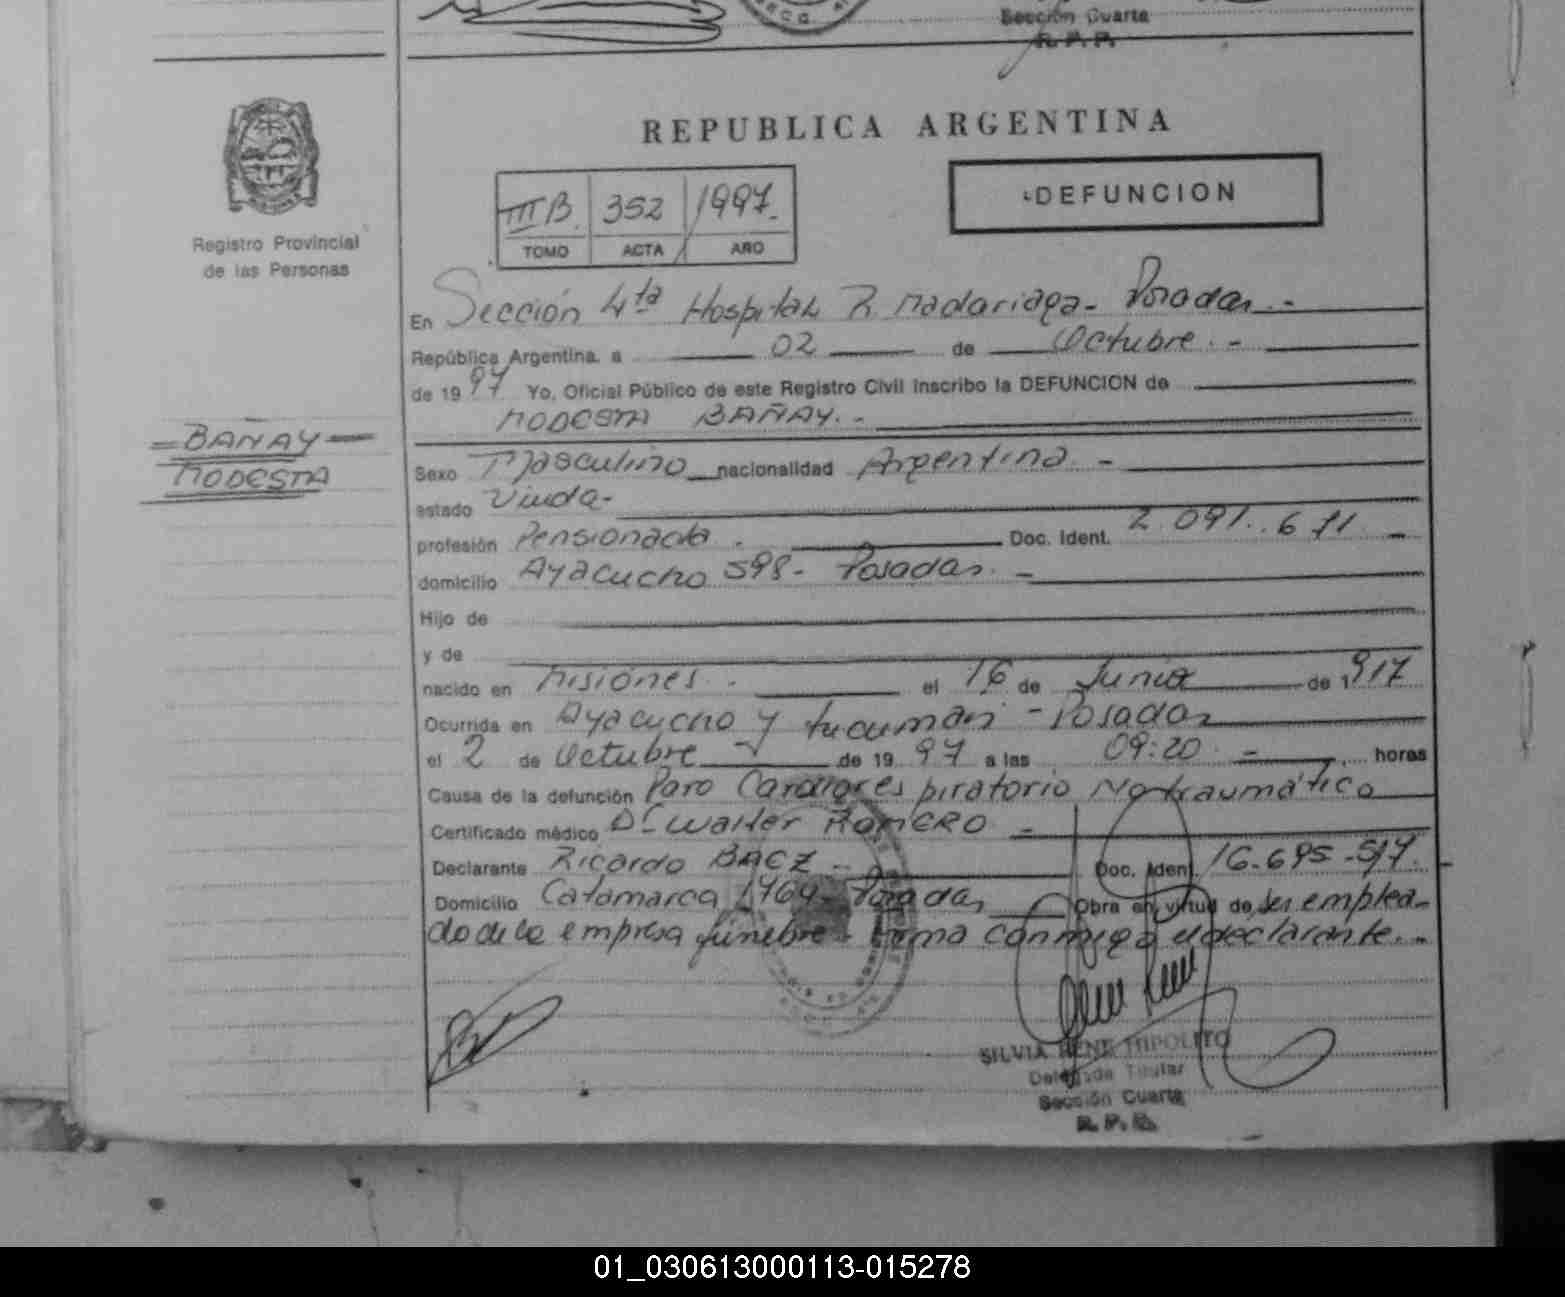 Sección Cuarta
R. P. P.
REPUBLICA ARGENTINA
III B. 352 1997.
TOMO ACTA AÑO
DEFUNCION
Registro Provincial
de las Personas
En Sección 4ta Hospital R. Madariaga - Posadas. -
República Argentina, a 02 de Octubre. -
de 1997 Yo, Oficial Público de este Registro Civil inscribo la DEFUNCION de
MODESTA BAÑAY. -
BAÑAY
MODESTA
Sexo Masculino nacionalidad Argentina. -
estado Viuda -
profesión Pensionada. Doc. Ident. 2.091.611 -
domicilio Ayacucho 598 - Posadas. -
Hijo de
y de
nacido en Misiones. el 16 de Junio de 1917
Ocurrida en Ayacucho y tucumán - Posadas
el 2 de Octubre de 1997 a las 09:20. - horas
Causa de la defunción Paro Cardiorespiratorio No traumático
Certificado médico Dr Walter ROMERO -
Declarante Ricardo BAEZ - Doc. Iden. 16.695.517.
Domicilio Catamarca 1764 - Posadas Obra en virtud de ser emplea-
do de la empresa fúnebre - Firma conmigo el declarante. -
SILVIA RENE HIPOLITO
Delegada Titular
Sección Cuarta
R. P. P.
01_030613000113-015278